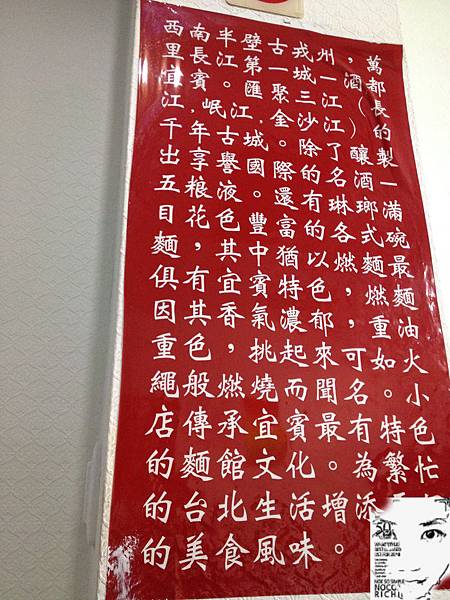 西南半壁古戎州，萬
里長江第一城，酒都
宜賓。匯聚三江（長
江.岷江.金沙江）的
千年古城。除了釀製
出享譽國際的名酒一
五粮液。還有琳瑯滿
目花色豐富的各式碗
麵，其中猶以燃麵最
俱有宜賓特色，燃麵
因其香氣濃郁，重油
重色，挑起來可如火
繩般燃燒而聞名。小
店傳承宜賓最有特色
的麵館文化。為繁忙
的台北生活增添
的美食風味。